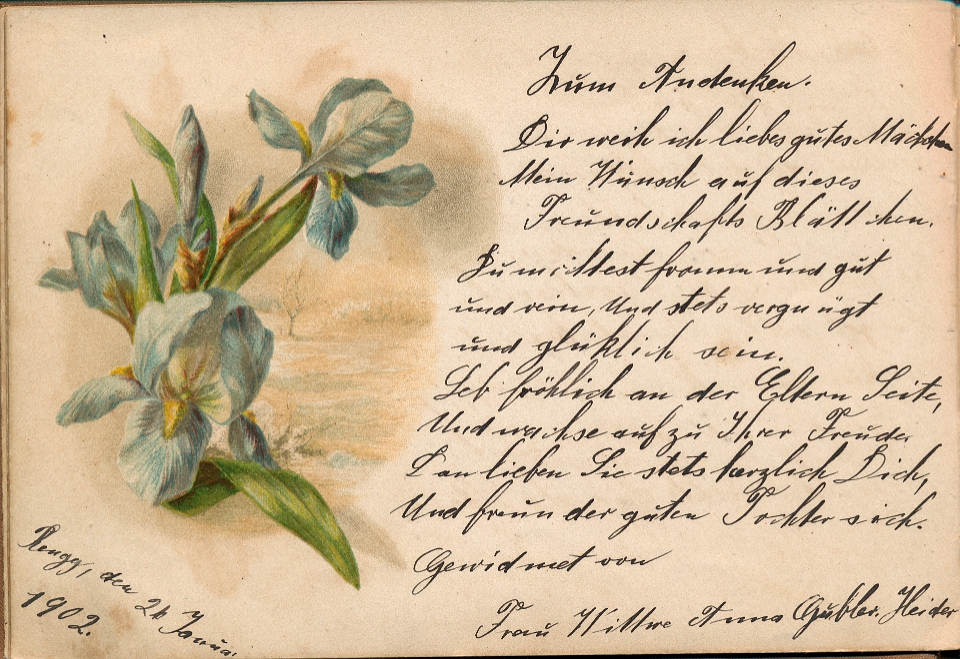 Zum Andenken.
Dir weih ich liebes gutes Mädchen
Mein Wunsch auf dieses
Freundschafts Blättchen.
Du möchtest fromm und gut
und rein, Und stets vergnügt
und glüklich sein.
Leb fröhlich an der Eltern Seite,
Und wachse auf zu Ihrer Freude
Dan lieben Sie stets herzlich Dich,
Und freun der guten Tochter sich.
Gewidmet von
Frau Wittwe Anna Gubler. Heider
Rengg, den Januar
1902.